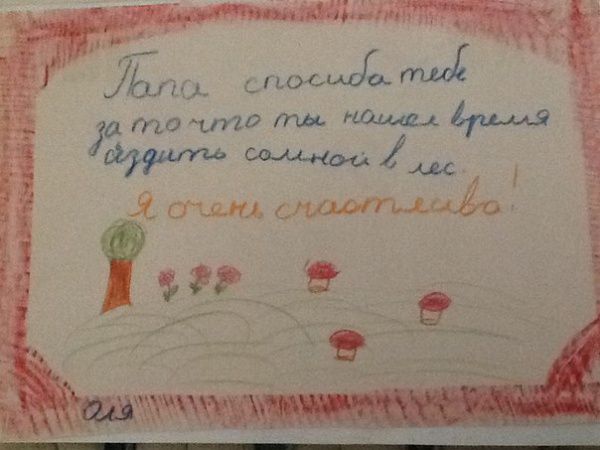 Папа спосиба тебе
за то что ты нашел время
яздить сомной в лес.
Я очень счастлива!
Оля